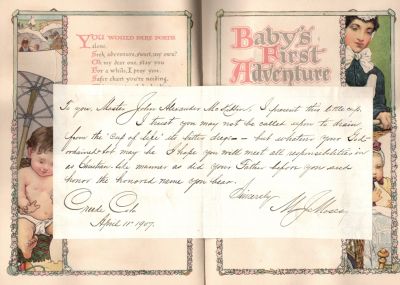 YOU WOULD FARE FORTH
alone,
Seek adventure, sweet, my own?
Oh my dear one, stay you
For a while, I pray you.
Safer chart you're needing,
Baby's
First
Adventure
To you, Master John Alexander I present this little cup.
I trust you may not be called upon to drain
from the "Cup of life" its bitter dregs - but whatever your God-
ordained lot may be I hope you will meet all responsibilities in
as Christian like manner as did your Father before you and
honor the honored name you bear.
Sincerely
Creede Colo
April 11" 1907.